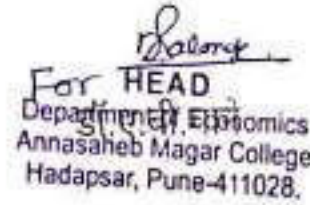 For HEAD
Department of Economics
Annasaheb Magar College
Hadapsar, Pune-411028.